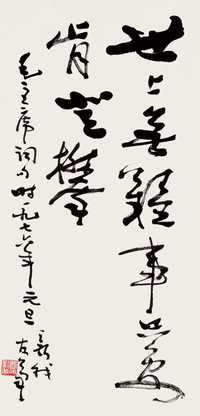 世上無難事只要
肯登攀
毛主席词句 时一九七六年元旦